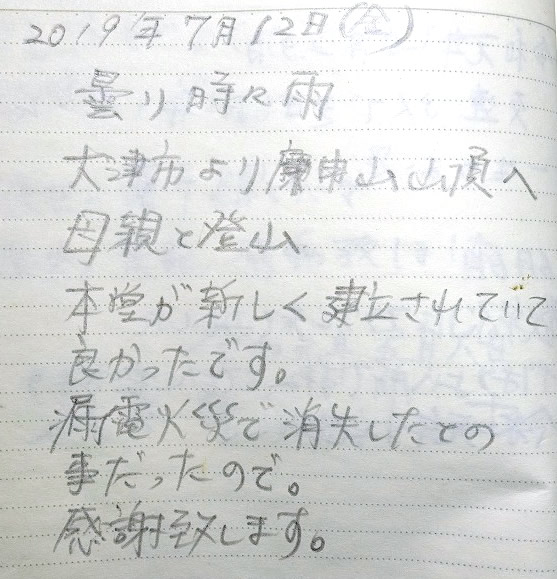 2019年7月12日(金)
曇り時々雨
大津市より庚申山山頂へ
母親と登山
本堂が新しく建立されていて
良かったです。
漏電火災で消失したとの
事だったので。
感謝致します。